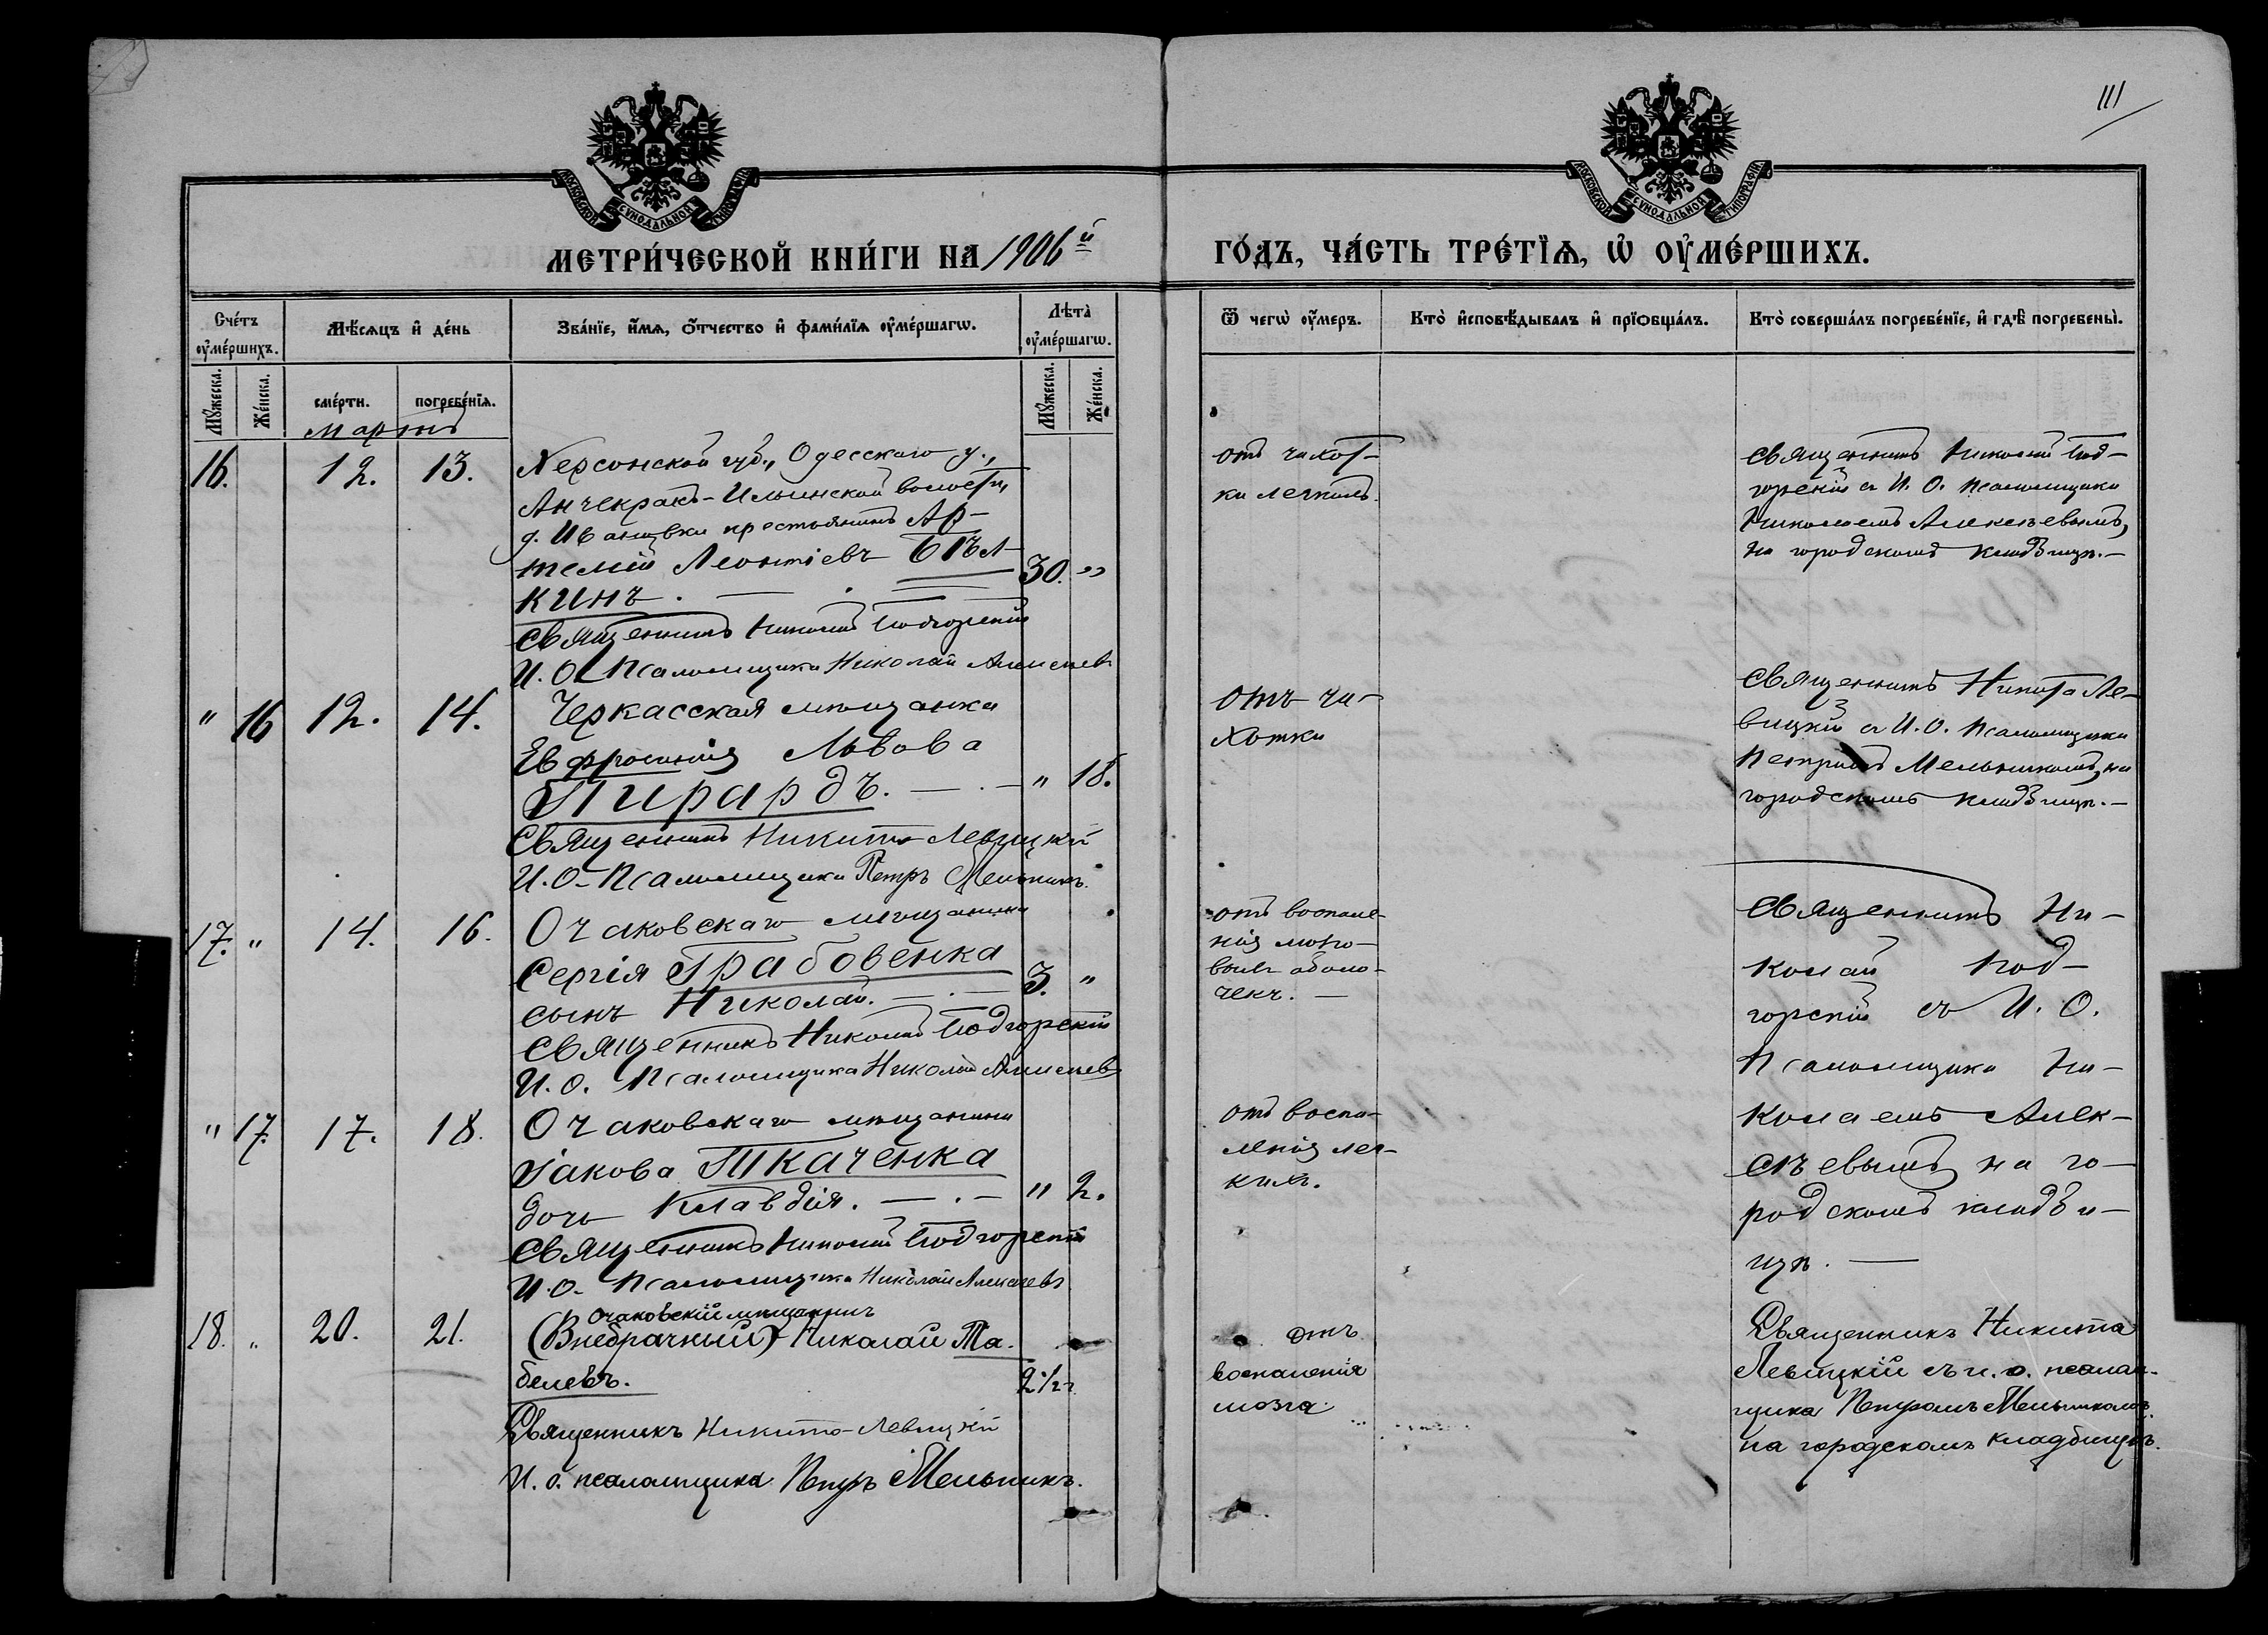 111
МОСКОВСКОЙ СѴНОДАЛЬНОЙ ТИПОГРАФІИ
МОСКОВСКОЙ СѴНОДАЛЬНОЙ ТИПОГРАФІИ
МЕТРИ́ЧЕСКОЙ КНИ́ГИ НА 1906й
ГО́ДЪ, ЧА́СТЬ ТРЕ́ТЇѦ, Ѡ҆ ОУ҆МЕ́РШИХЪ.
Сче́тъ оу҆ме́ршихъ.
Мѣ́сѧцъ и҆ де́нь
Зва́нїе, и҆́мѧ, ѻ҆́тчество и҆ фами́лїѧ оу҆ме́ршагѡ.
Лѣта̀ оу҆ме́ршагѡ.
Ѿ чегѡ̀ оу҆́меръ.
Кто̀ и҆сповѣ́дывалъ и҆ прїѻбща́лъ.
Кто̀ соверша́лъ погребе́нїе, и҆ гдѣ̀ погребены̀.
Мꙋ́жеска.
Же́нска.
сме́рти.
погребе́нїѧ.
Мꙋ́жеска.
Же́нска.
Мартъ
16. 12. 13.
Херсонской губ., Одесскаго у.,
Анчекракъ-Ильинской волости,
д. Ивановки крестьянинъ Ар-
темій Леонтіевъ Бѣл-
кинъ.
30. "
Священникъ Николай Подгорскій
И. О. Псаломщика Николай Алексѣевъ
отъ чахот-
ки легкихъ.
Священникъ Николай Под-
горскій съ И. О. псаломщика
Николаемъ Алексѣевымъ,
на городскомъ кладбищѣ.
" 16 12. 14.
Черкасская мѣщанка
Евфросинія Львова
Пирардъ.
" 18.
Священникъ Никита Левицкій
И. О. Псаломщика Петръ Мельникъ.
отъ ча-
хотки
Священникъ Никита Ле-
вицкій съ И. О. псаломщика
Петромъ Мельникомъ, на
городскомъ кладбищѣ.
17. " 14. 16.
Очаковскаго мѣщанина
Сергія Грабовенка
сынъ Николай.
3. "
Священникъ Николай Подгорскій
И. О. Псаломщика Николай Алексѣевъ
отъ воспале-
нія мозго-
выхъ оболо-
чекъ.
Священникъ Ни-
колай Под-
горскій съ И. О.
Псаломщика Ни-
колаемъ Алек-
сѣевымъ на го-
родскомъ кладби-
щѣ.
" 17. 17. 18.
Очаковскаго мѣщанина
Іакова Ткаченка
дочь Клавдія.
" 2.
Священникъ Николай Подгорскій
И. О. Псаломщика Николай Алексѣевъ
отъ воспа-
ленія лег-
кихъ.
18. " 20. 21.
Очаковскій мѣщанинъ
(Внебрачный) Николай Та-
белевъ.
2 1/2
Священникъ Никита Левицкій
И. о. псаломщика Петръ Мельникъ.
отъ
воспаленія
мозга.
Священникъ Никита
Левицкій съ и. о. псалом-
щика Петромъ Мельникомъ
на городскомъ кладбищѣ.